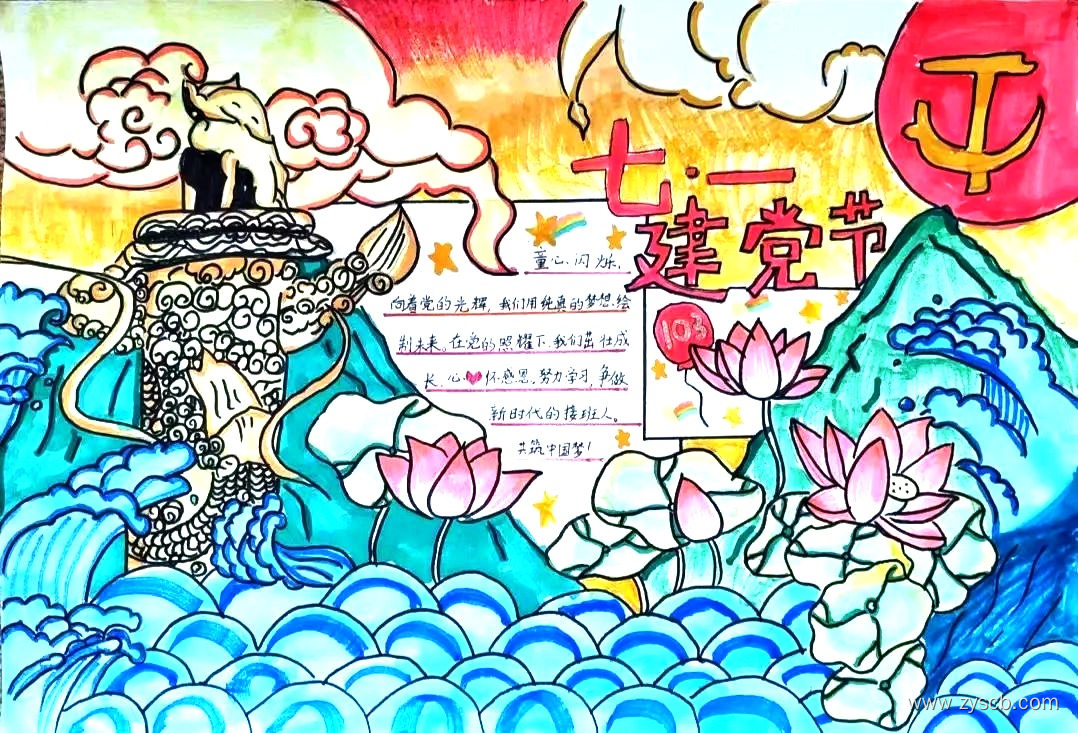 七·一
建党节
童心闪烁,
向着党的光辉,我们用纯真的梦想绘
制未来。在党的照耀下,我们茁壮成
长,心怀感恩,努力学习,争做
新时代的接班人。
共筑中国梦!
103
www.zyscb.com